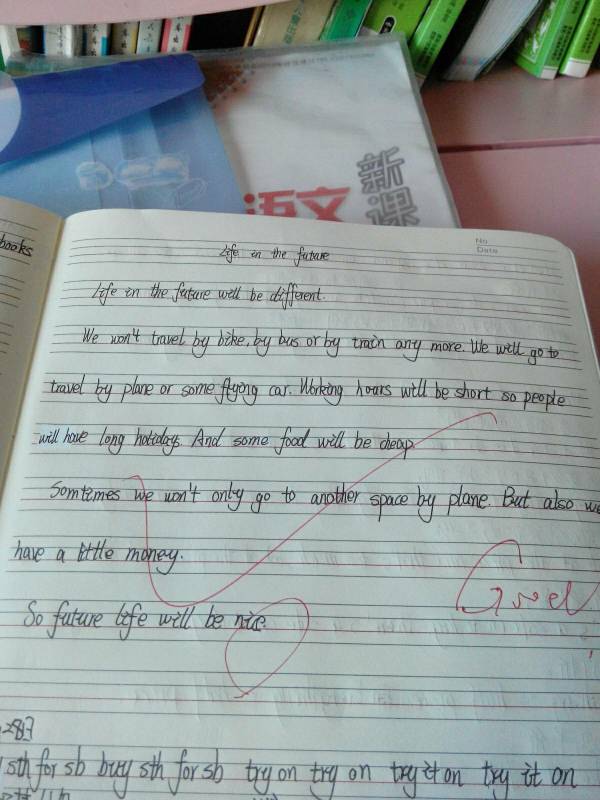 语文
新
课
No
Date
books
Life in the future
Life in the future will be different.
We won't travel by bike, by bus or by train any more. We will go to
travel by plane or some flying car. Working hours will be short so people
will have long holidays. And some food will be cheap.
Somtimes we won't only go to another space by plane. But also we
have a little money.
Good
So future life will be nice.
sth for sb buy sth for sb try on try on try it on try it on